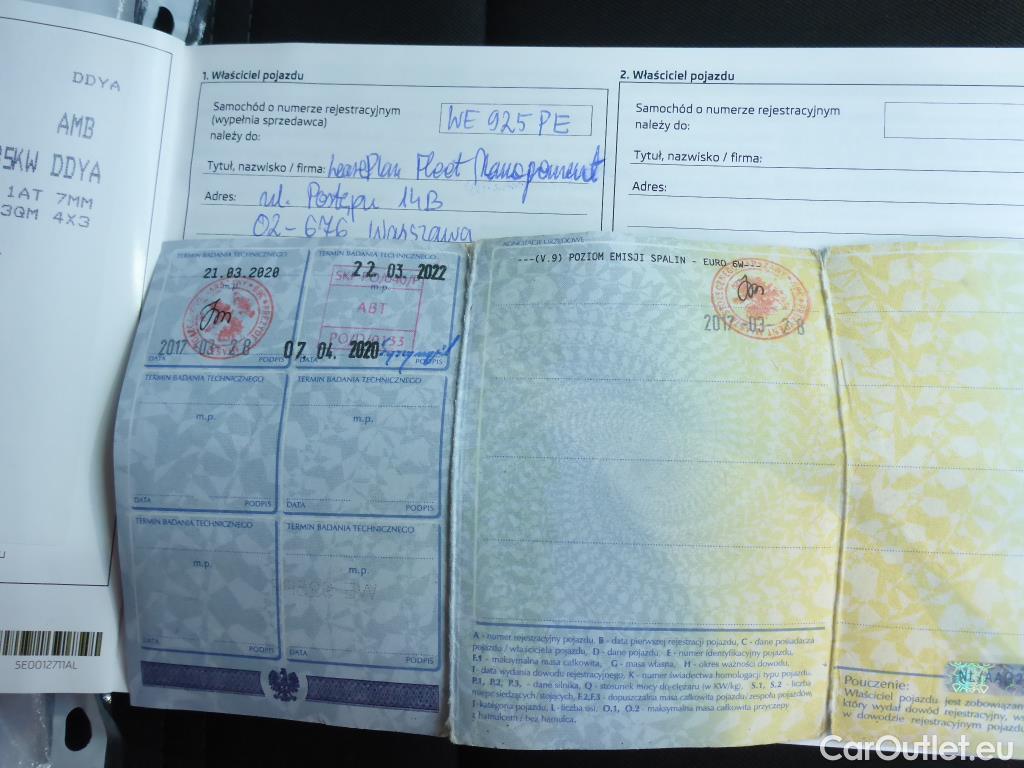 DDYA
AMB
5KW DDYA
1AT 7MM
3QM 4X3
SE0012711AL
1. Właściciel pojazdu
Samochód o numerze rejestracyjnym
(wypełnia sprzedawca)
należy do:
WE 925PE
Tytuł, nazwisko / firma: LeasePlan Fleet Management
Adres: ul. Postępu 14B
02-676 Warszawa
2. Właściciel pojazdu
Samochód o numerze rejestracyjnym
należy do:
Tytuł, nazwisko / firma:
Adres:
TERMIN BADANIA TECHNICZNEGO
21.03.2020
2017 -03- 28
DATA PODPIS
TERMIN BADANIA TECHNICZNEGO
22. 03. 2022
m.p.
ABT
07. 04. 2020
DATA PODPIS
TERMIN BADANIA TECHNICZNEGO
m.p.
DATA PODPIS
TERMIN BADANIA TECHNICZNEGO
m.p.
DATA PODPIS
TERMIN BADANIA TECHNICZNEGO
m.p.
DATA PODPIS
TERMIN BADANIA TECHNICZNEGO
m.p.
DATA PODPIS
ADNOTACJE URZĘDOWE
---(V.9) POZIOM EMISJI SPALIN - EURO 6W---
2017 -03- 28
A - numer rejestracyjny pojazdu, B - data pierwszej rejestracji pojazdu, C - dane posiadacza
pojazdu / właściciela pojazdu, D - dane pojazdu, E - numer identyfikacyjny pojazdu,
F.1 - maksymalna masa całkowita, G - masa własna, H - okres ważności dowodu,
I - data wydania dowodu rejestracyjnego, K - numer świadectwa homologacji typu pojazdu,
P.1, P.2, P.3, - dane silnika, Q - stosunek mocy do ciężaru (w KW/kg), S.1, S.2 - liczba
miejsc siedzących/stojących, F.2,F.3 - dopuszczalna masa całkowita pojazdu/zespołu pojazdów
J-kategoria pojazdu, L - liczba osi, O.1, O.2 - maksymalna masa całkowita przyczepy
z hamulcem / bez hamulca.
Pouczenie:
Właściciel pojazdu jest zobowiązan
który wydał dowód rejestracyjny, w
w dowodzie rejestracyjnym pojazd
CarOutlet.eu